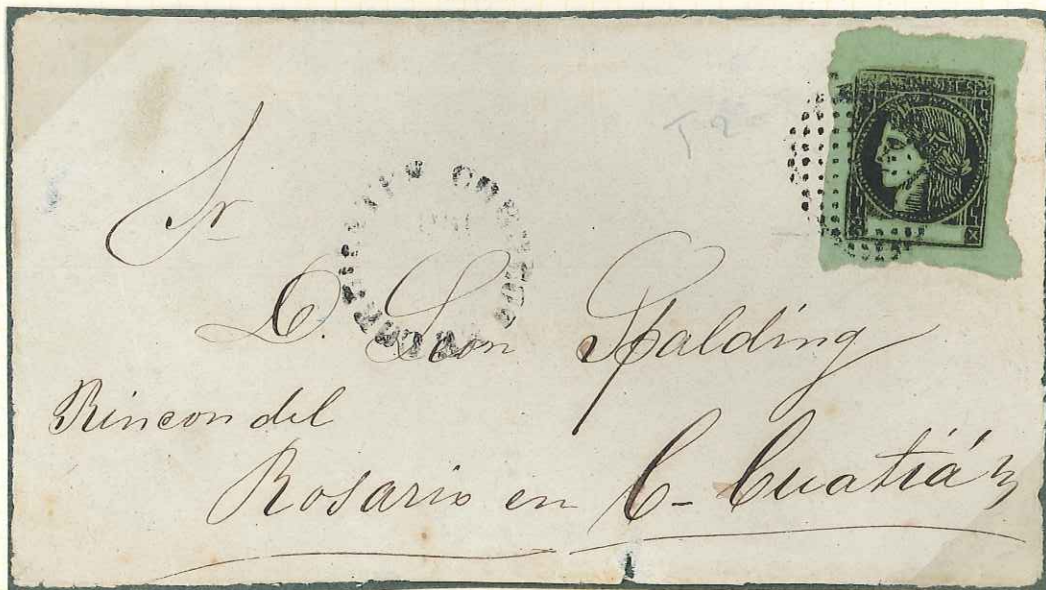 T 2
Sr
D. Leon Spalding
Rincon del
Rosario en C- Cuatiá